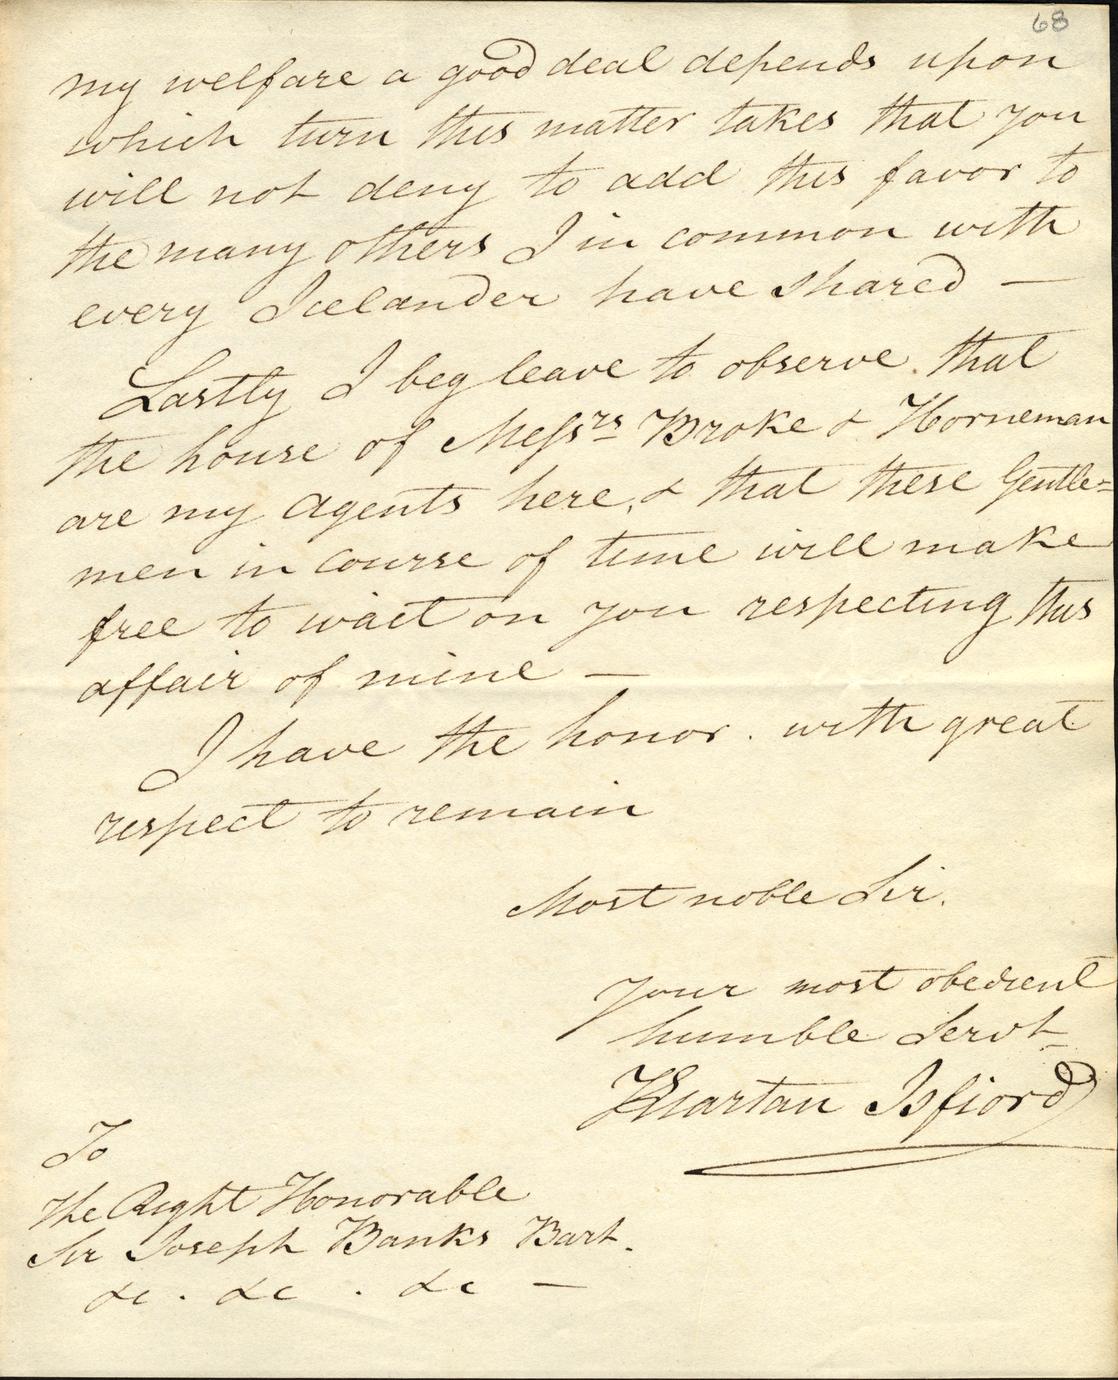 68
my welfare a good deal depends upon
which turn this matter takes that you
will not deny to add this favor to
the many others I in common with
every Icelander have shared —
Lastly I beg leave to observe. that
the house of Messrs Broke & Horneman
are my Agents here, & that these Gentle=
men in course of time will make
free to wait on you respecting this
affair of mine —
I have the honor. with great
respect to remain
Most noble Sir.
Your most obedient
humble Servt
Kiartan Isfiord
To
The Right Honorable
Sir Joseph Banks Bart.
&c . &c . &c —